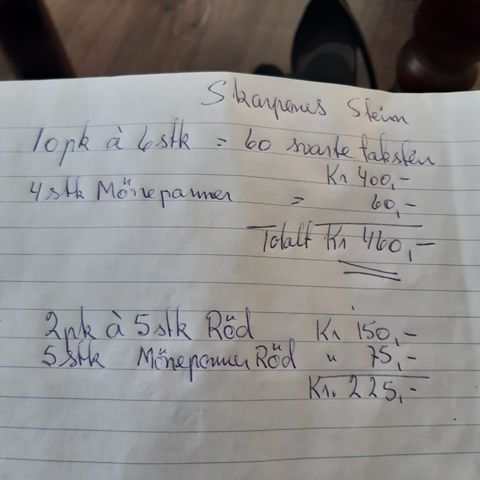 Skarpenes Steinn
10pk à 6stk = 60 svarte taksten
Kr 400,-
4stk Mönepanner = 60,-
Totalt Kr 460,-
2pk à 5stk Röd Kr 150,-
5stk Mönepanner Röd " 75,-
Kr. 225,-